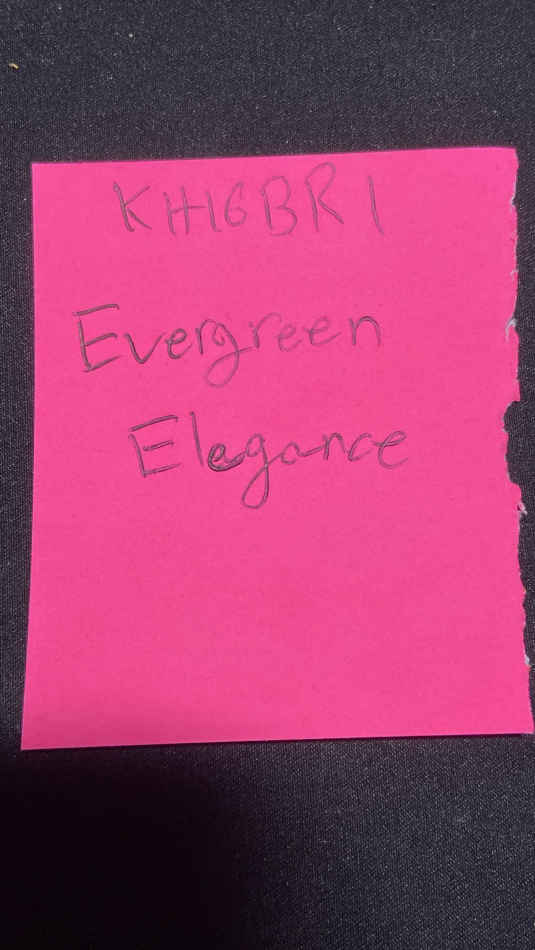 KH16BR1
Evergreen
Elegance